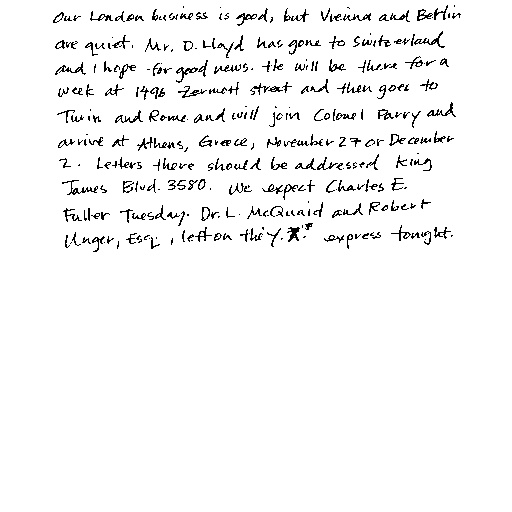 Our London business is good, but Vienna and Berlin
are quiet. Mr. D. Lloyd has gone to Switzerland
and I hope for good news. He will be there for a
week at 1496 Zermott street and then goes to
Turin and Rome and will join Colonel Parry and
arrive at Athens, Greece, November 27 or December
2. Letters there should be addressed King
James Blvd. 3580. We expect Charles E.
Fuller Tuesday. Dr. L. McQuaid and Robert
Unger, Esq., left on the Y. express tonight.